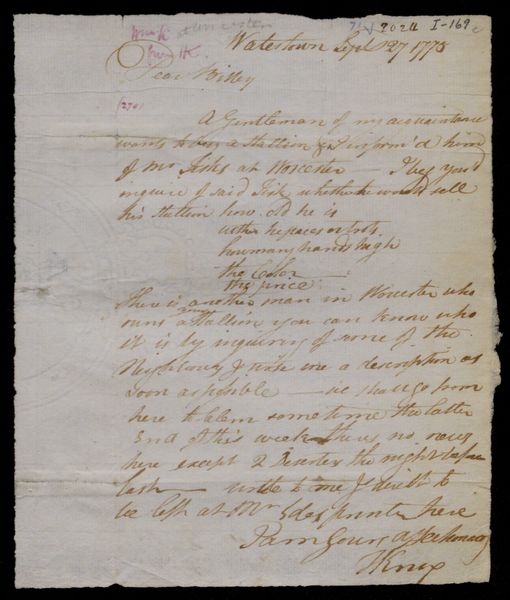 2024 I-169
Watertown Sept 27 1775
Dear Billey
(270)
A Gentleman of my acquaintance
wants to buy a Stallion & I inform'd him
of Mr Fisks at Worcester — I beg you'd
inquire of said Fisk whether he would sell
his Stallion how old he is
he paces or trots
how many hands high
the Color
the price
There is another man in Worcester who
owns a Stallion you can know who
it is by inquiring of some of the
Neighbours & write me a description as
soon as possible — we shall go from
here to sometime the latter
End of this week there is no news
here except 2 Deserters the night before
last — write to me & direct to
be left at Mr Edes printer here
I am Yours affectionately
HKnox